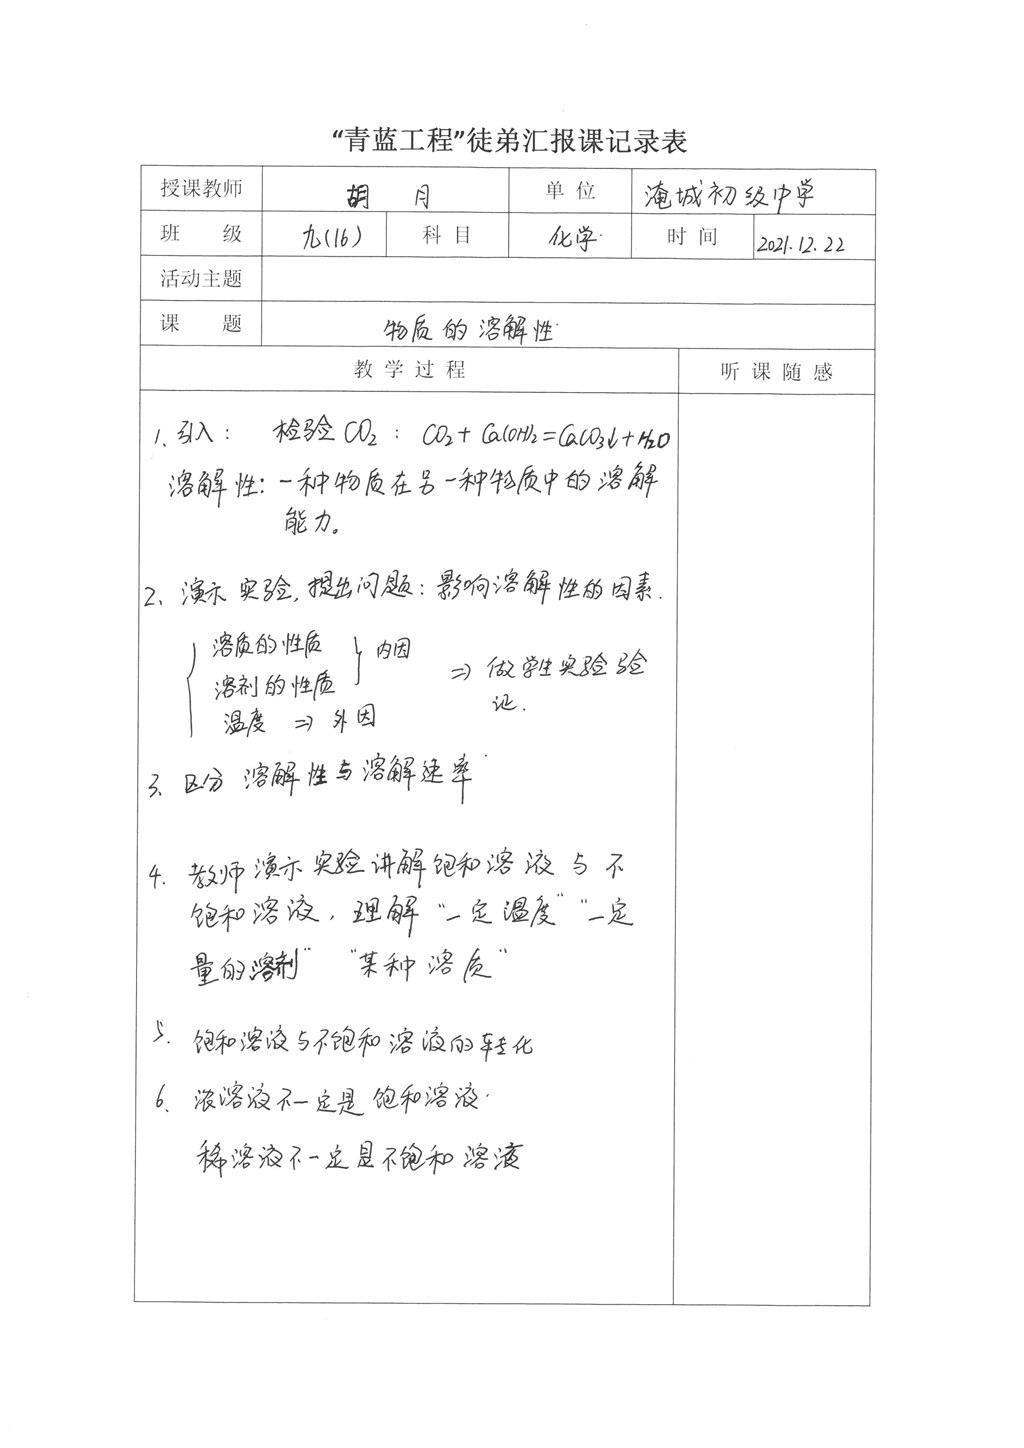 “青蓝工程”徒弟汇报课记录表
授课教师 胡 月 单 位 淹城初级中学
班 级 九(16) 科 目 化学 时 间 2021.12.22
活动主题
课 题 物质的溶解性
教 学 过 程 听 课 随 感
1、引入： 检验CO2：CO2+Ca(OH)2=CaCO3↓+H2O
溶解性：一种物质在另一种物质中的溶解
能力。
2、演示实验，提出问题：影响溶解性的因素.
溶质的性质 内因
溶剂的性质 ⇒ 做学生实验验
温度 ⇒ 外因 证.
3、区分 溶解性与溶解速率
4. 教师演示实验讲解饱和溶液与不
饱和溶液，理解“一定温度”“一定
量的溶剂”“某种溶质”
5. 饱和溶液与不饱和溶液的转化
6、浓溶液不一定是饱和溶液.
稀溶液不一定是不饱和溶液